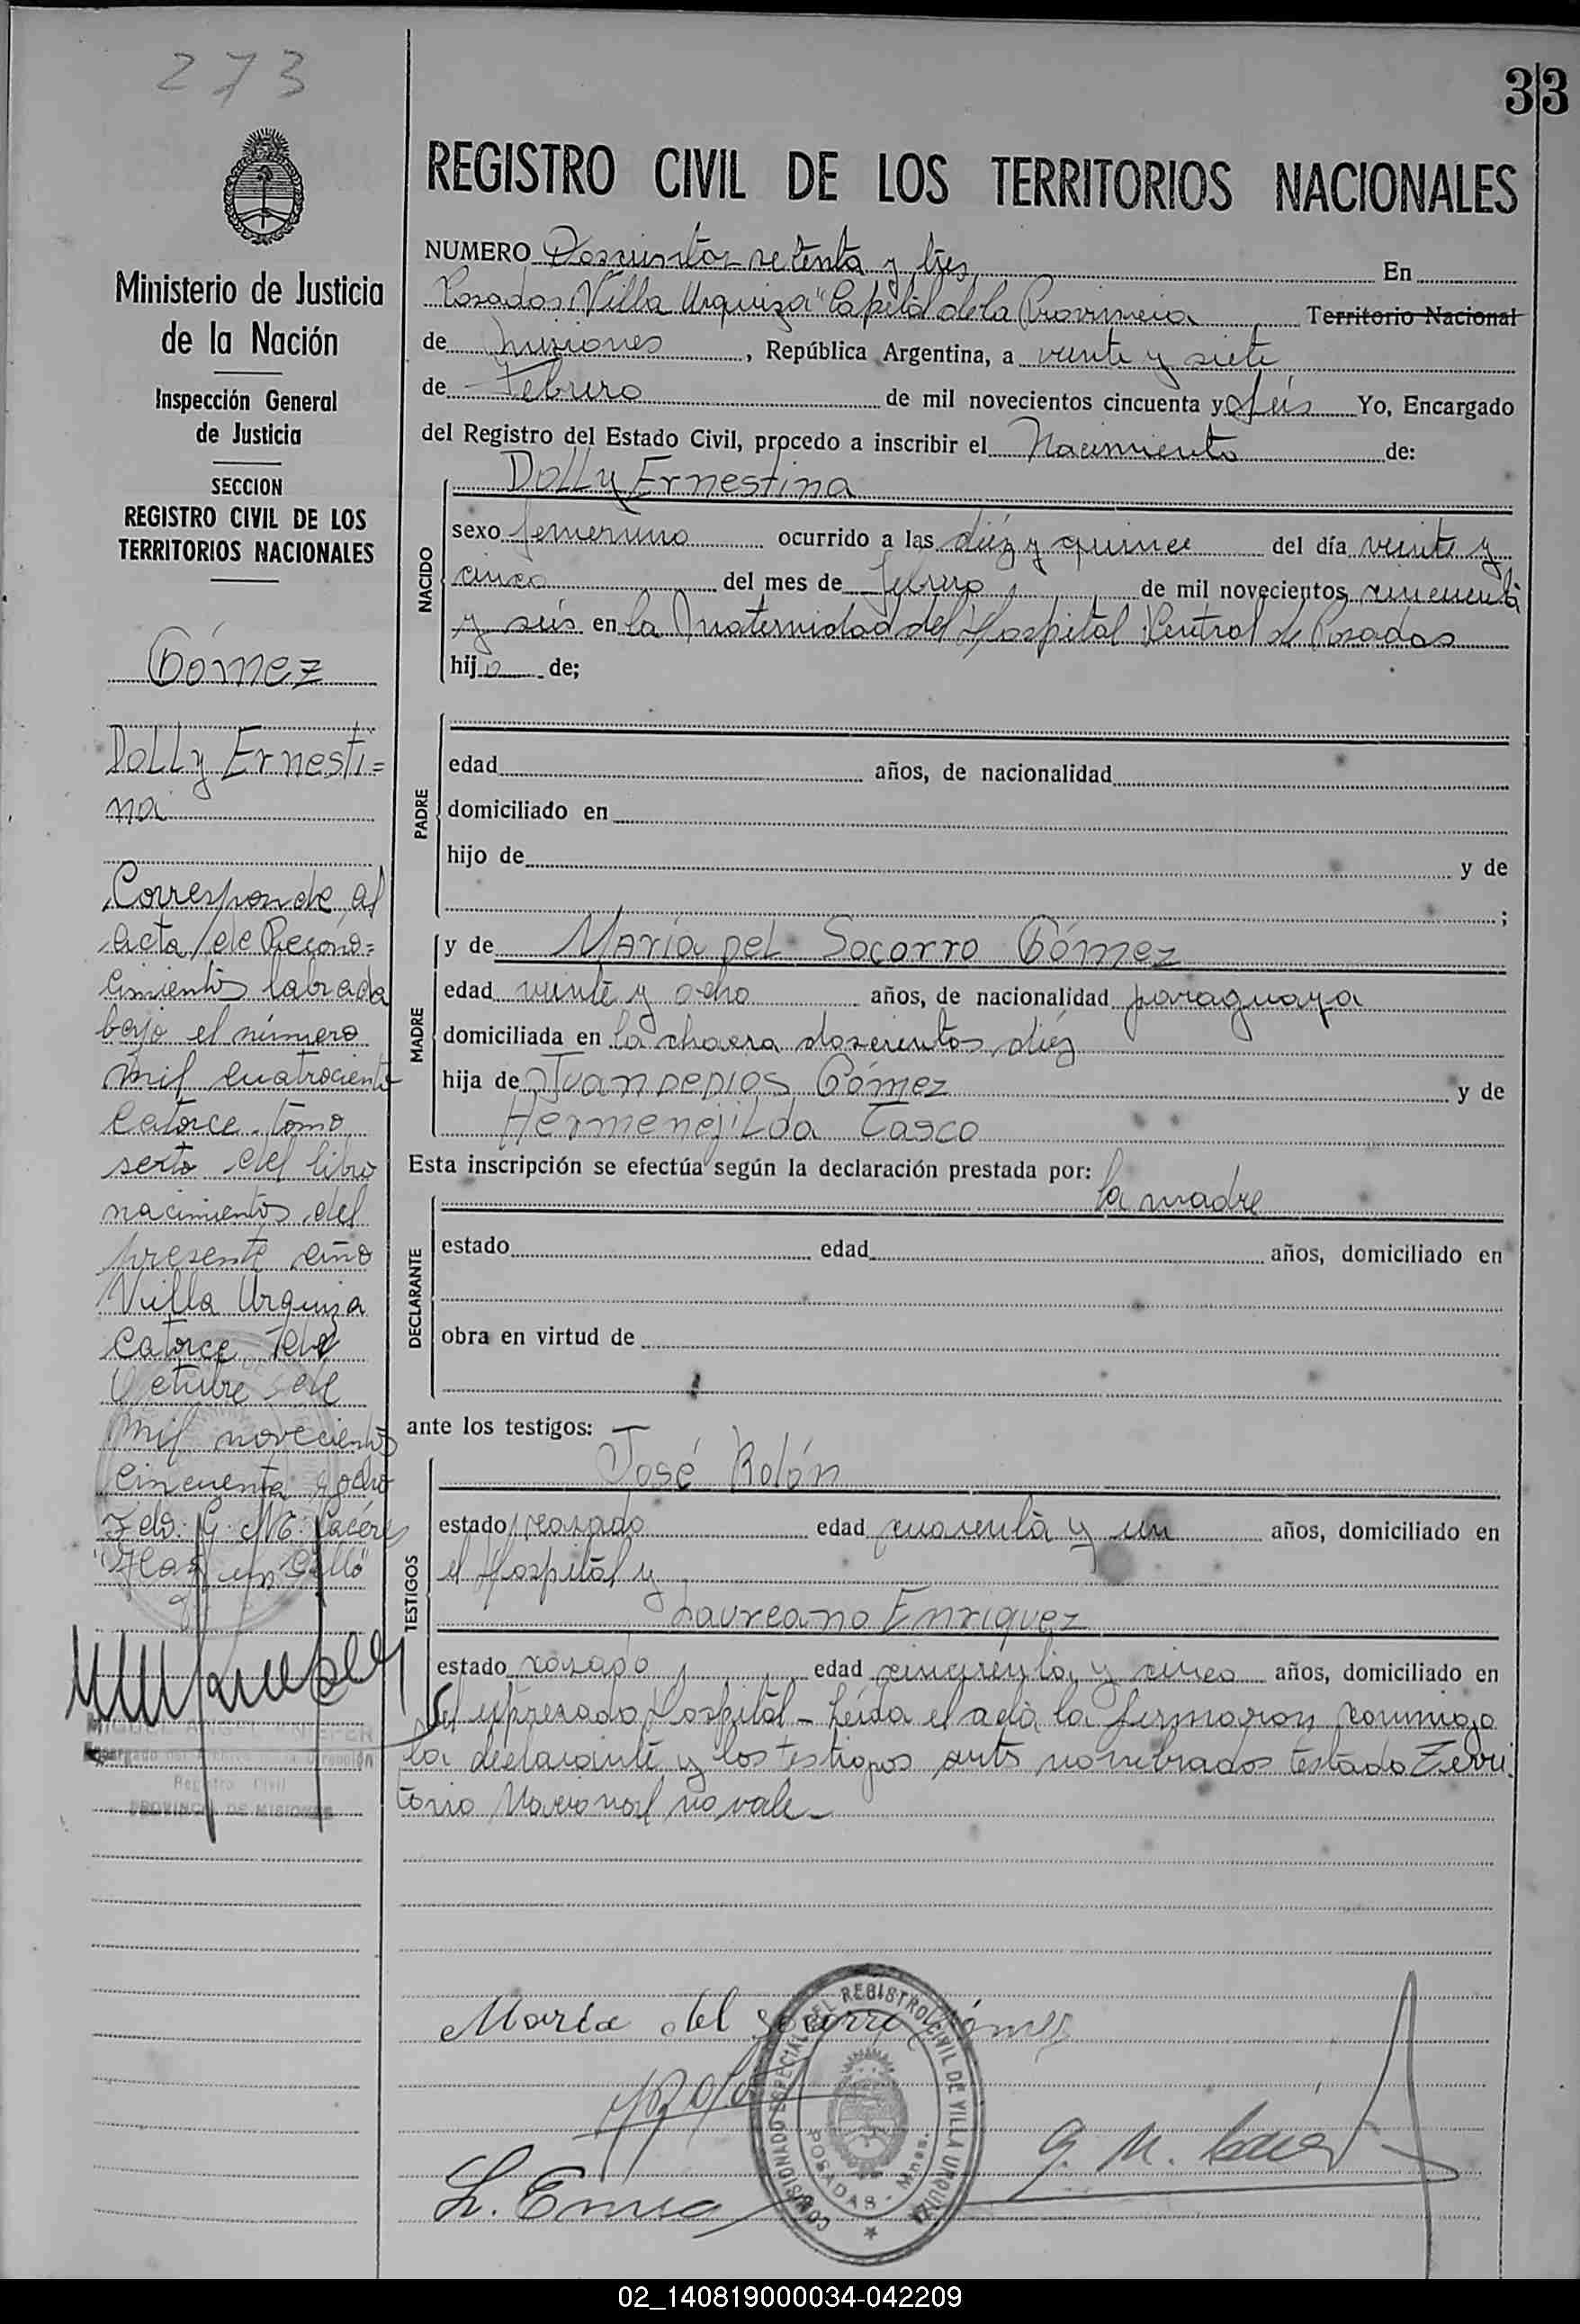 273
33
REGISTRO CIVIL DE LOS TERRITORIOS NACIONALES
Ministerio de Justicia
de la Nación
Inspección General
de Justicia
SECCION
REGISTRO CIVIL DE LOS
TERRITORIOS NACIONALES
Gómez
Dolly Ernesti=
na
Corresponde al
acta de Recono=
cimiento labrada
bajo el número
mil cuatrociento
catorce tomo
sexto del libro
nacimientos del
presente año
Villa Urquiza
catorce de
Octubre de
mil novecientos
cincuenta y ocho
Fdo. G. M. Cacéres
"Hay un sello"
Registro Civil
PROVINCIA DE MISIONES
NUMERO Doscientos setenta y tres En
Posadas "Villa Urquiza" Capital de la Provincia Territorio Nacional
de Misiones, República Argentina, a veinte y siete
de Febrero de mil novecientos cincuenta y seis Yo, Encargado
del Registro del Estado Civil, procedo a inscribir el Nacimiento de:
NACIDO
Dolly Ernestina
sexo femenino ocurrido a las diéz y quince del día veinte y
cinco del mes de febrero de mil novecientos cincuenta
y seis en la Maternidad del Hospital Central de Posadas
hija de;
PADRE
edad años, de nacionalidad
domiciliado en
hijo de y de
;
MADRE
y de María del Socorro Gómez
edad veinte y ocho años, de nacionalidad paraguaya
domiciliada en la chacra doscientos diéz
hija de Juan de Dios Gómez y de
Hermenejilda Tasco
Esta inscripción se efectúa según la declaración prestada por:
la madre
DECLARANTE
estado edad años, domiciliado en
obra en virtud de
ante los testigos:
TESTIGOS
José Rolón
estado casado edad cuarenta y un años, domiciliado en
el Hospital y
Laureano Enriquez
estado casado edad cincuenta y cinco años, domiciliado en
el expresado Hospital - Leída el acta la firmaron conmigo
la declarante y los testigos ants nombrados testado Terri
torio Nacional no vale -
María del Socorro Gómez
G. M. Cacér
COMISIONADO ESPECIAL DEL REGISTRO CIVIL DE VILLA URQUIZA
POSADAS - Mnes.
02_140819000034-042209